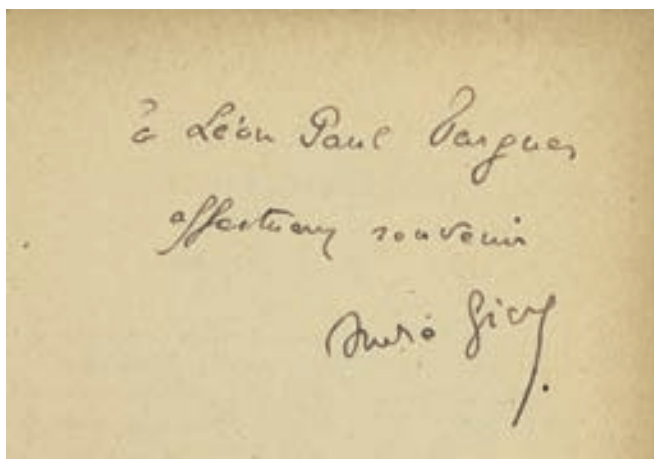 à Léon Paul Fargue,
affectueux souvenir
André Gide.